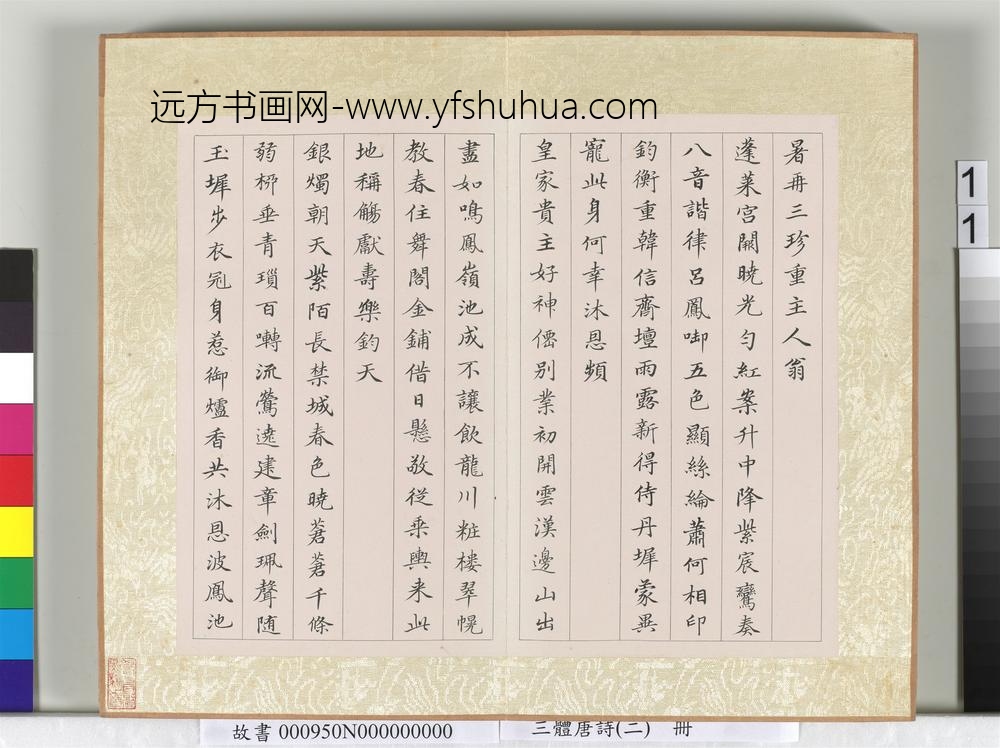 远方书画网-www.yfshuhua.com
暑再三珍重主人翁
蓬莱宫闕曉光勻紅案升中降紫宸鸞奏
八音諧律呂鳳啣五色顯絲綸蕭何相印
鈞衡重韓信齋壇雨露新得侍丹墀蒙異
寵此身何幸沐恩頻
皇家貴主好神僊别業初開雲漢邊山出
盡如鳴鳳嶺池成不讓飲龍川粧楼翠幌
教春住舞閣金鋪借日懸敬從乗輿来此
地稱觴獻壽樂鈞天
銀燭朝天紫陌長禁城春色曉蒼蒼千條
弱柳垂青瑣百囀流鶯遶建章劍珮聲随
玉墀步衣冠身惹御爐香共沐恩波鳳池
1
1
故書 000950N000000000
三體唐詩(二) 冊